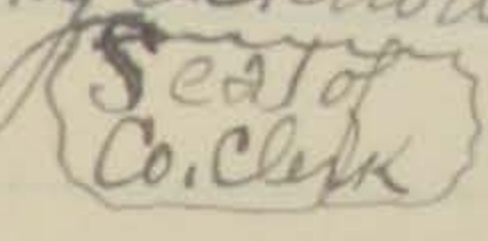 Seal of
Co. Clerk